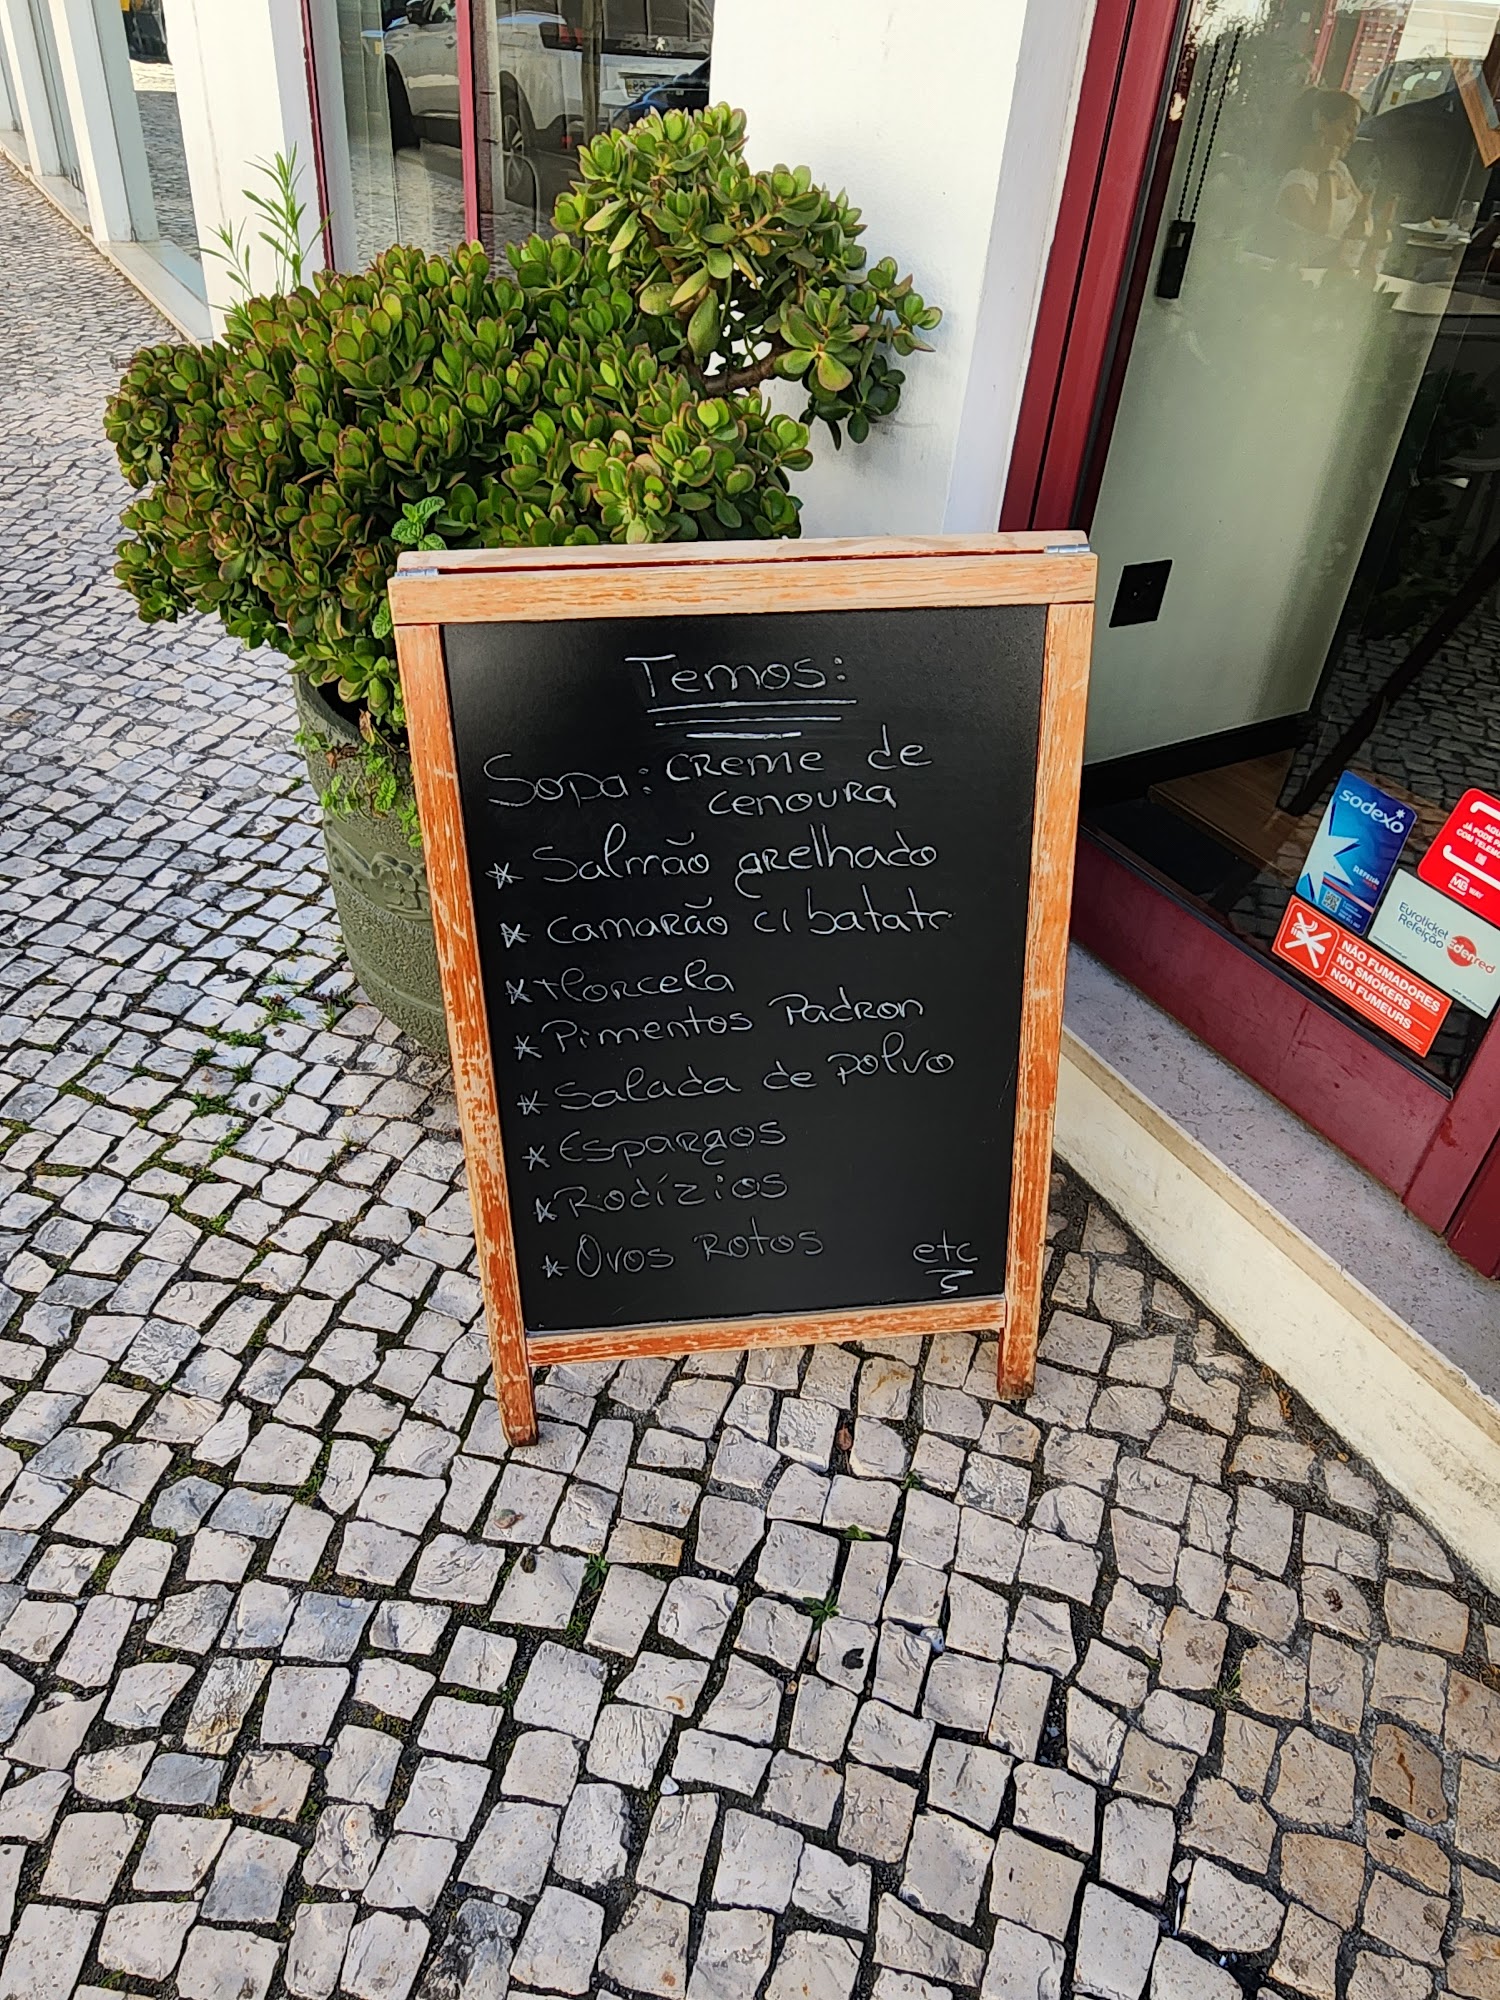 Temos:
Sopa: Creme de
Cenoura
* Salmão grelhado
* Camarão c/ batata
* Morcela
* Pimentos Padron
* Salada de polvo
* Espargos
* Rodízios
* Ovos Rotos
etc
sodexo
REFEIÇÃO
JÁ PODE P
COM TELEM
MB WAY
Euroticket
Refeição
Edenred
NÃO FUMADORES
NO SMOKERS
NON FUMEURS